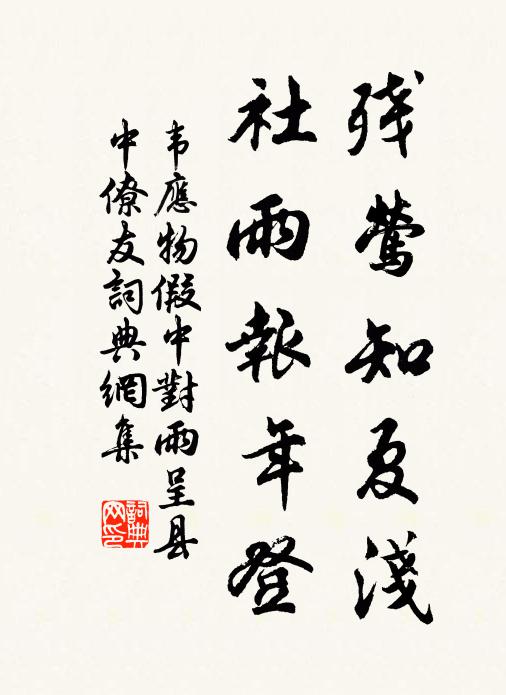 残莺知夏淺
社雨報年登
韦應物假中對雨呈县
中僚友詞典網集
詞典
网印